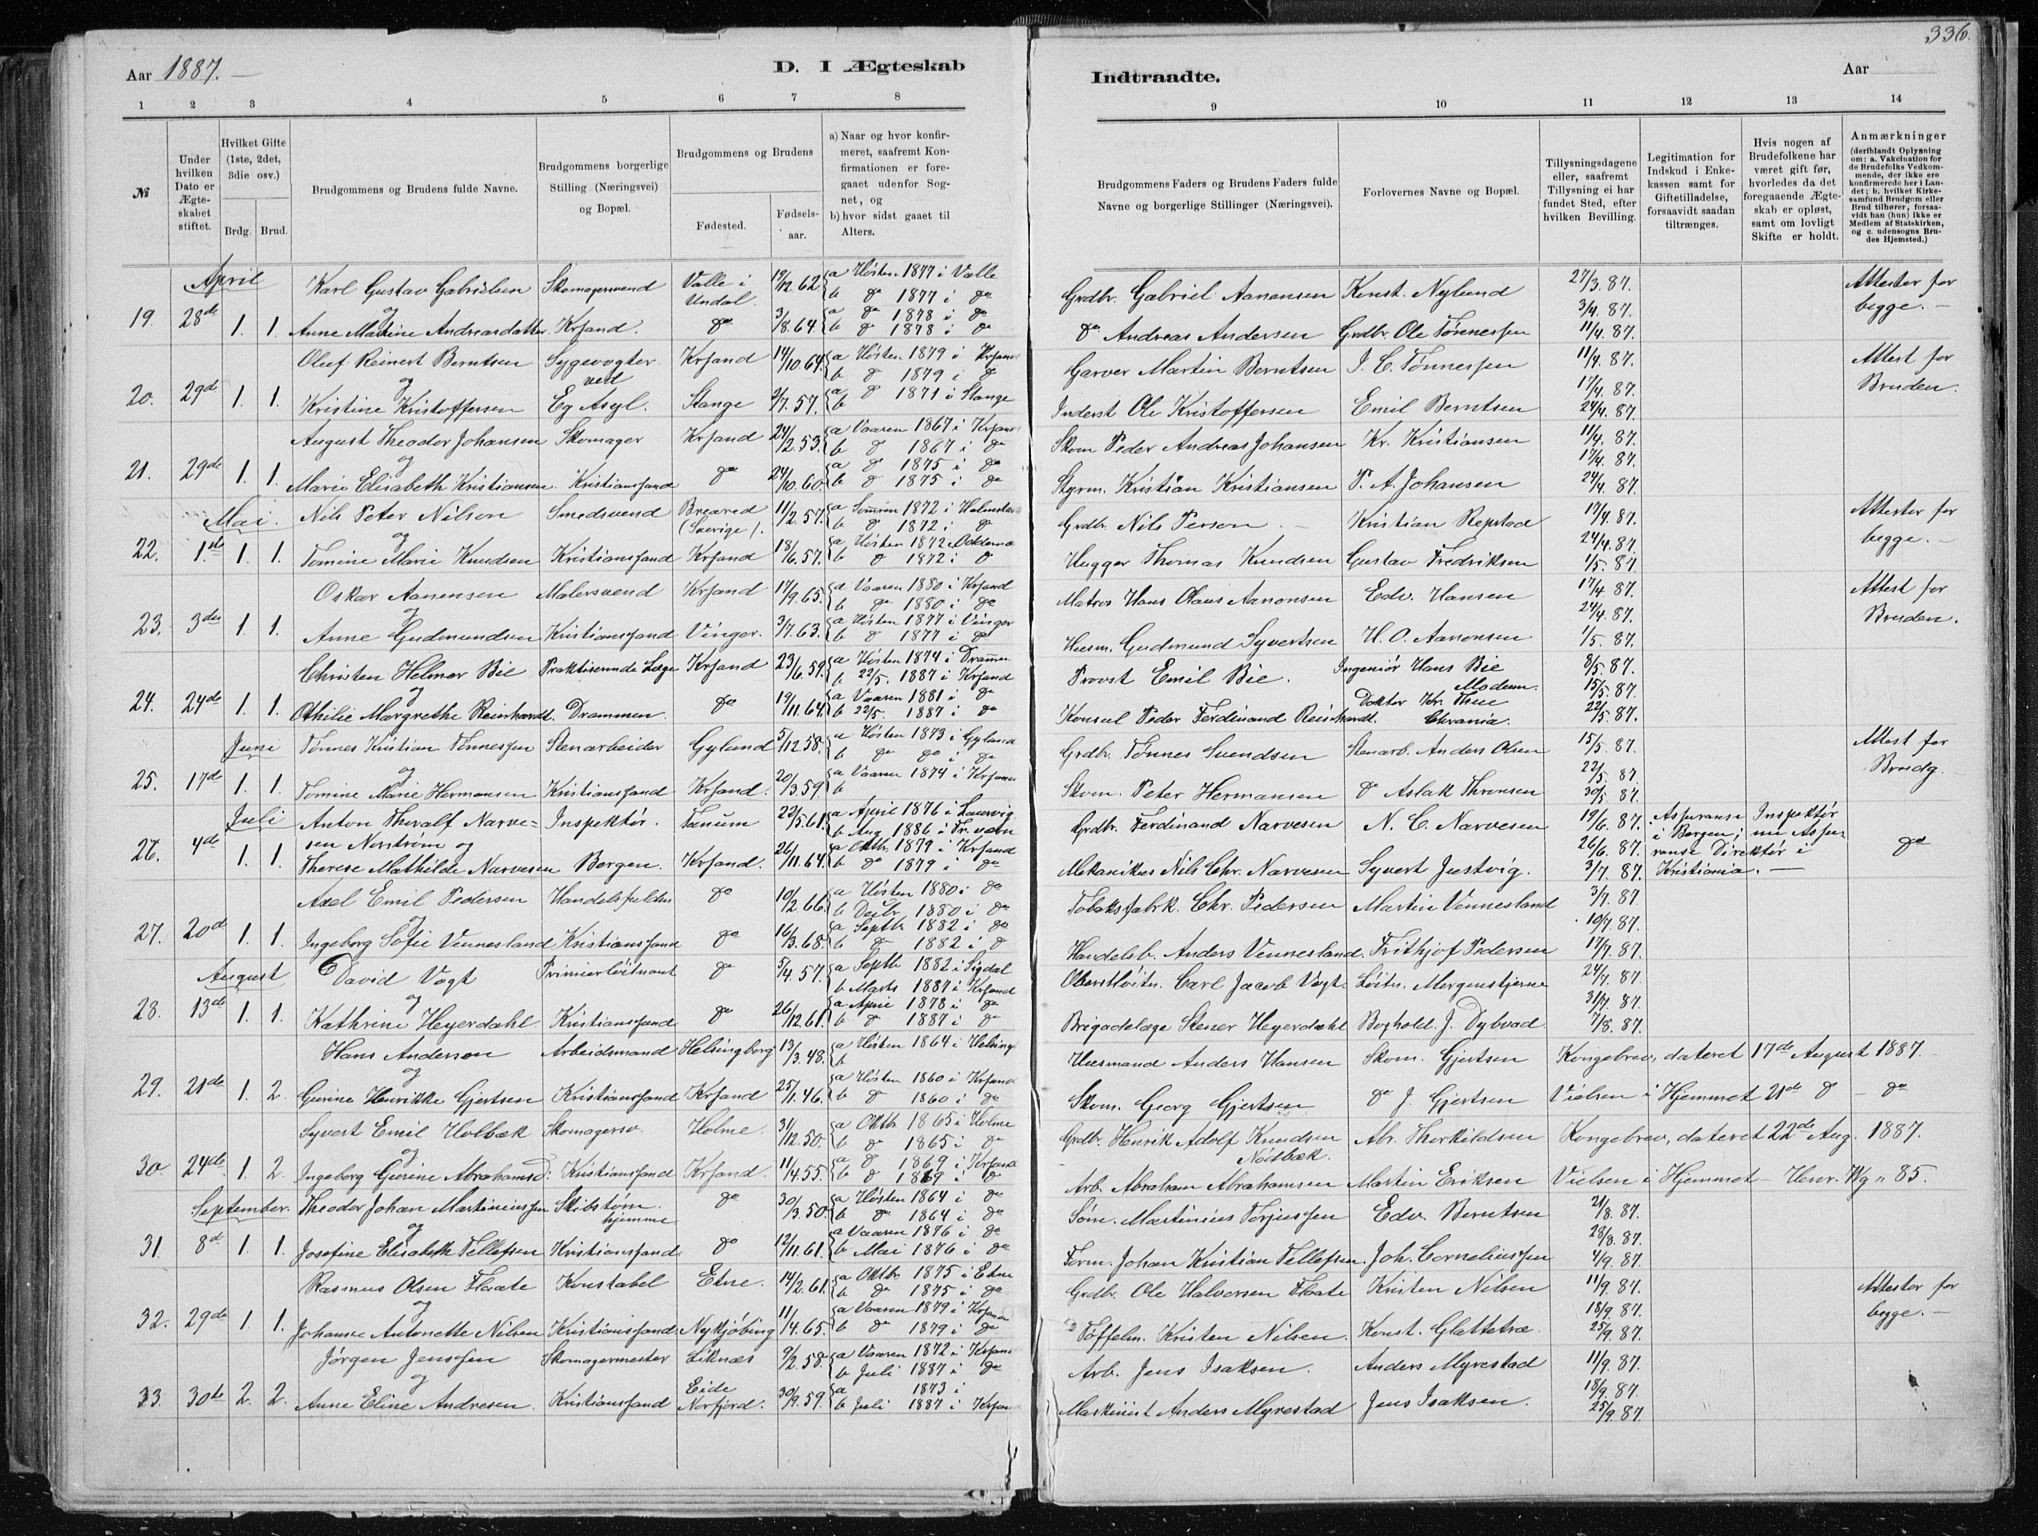 336.
Aar 1887. —
D. I Ægteskab
Indtraadte.
Aar
1 2 3 4 5 6 7 8
9 10 11 12 13 14
№
Under hvilken Dato er Ægteskabet stiftet.
Hvilket Gifte (1ste, 2det, 3die osv.)
Brdg. Brud.
Brudgommens og Brudens fulde Navne.
Brudgommens borgerlige Stilling (Næringsvei) og Bopæl.
Brudgommens og Brudens
Fødested.
Fødselsaar.
a) Naar og hvor konfirmeret, saafremt Konfirmationen er foregaaet udenfor Sognet, og
b) hvor sidst gaaet til Alters.
Brudgommens Faders og Brudens Faders fulde Navne og borgerlige Stillinger (Næringsvei).
Forlovernes Navne og Bopæl.
Tillysningsdagene eller, saafremt Tillysning ei har fundet Sted, efter hvilken Bevilling.
Legitimation for Indskud i Enkekassen samt for Giftetilladelse, forsaavidt saadan tiltrænges.
Hvis nogen af Brudefolkene har været gift før, hvorledes da det foregaaende Ægteskab er opløst, samt om lovligt Skifte er holdt.
Anmærkninger (deriblandt Oplysning om: a. Vakcination for de Brudefolks Vedkommende, der ikke ere konfirmerede her i Landet; b. hvilket Kirkesamfund Brudgom eller Brud tilhører, forsaavidt han (hun) ikke er Medlem af Statskirken, og c. udensogns Brudes Hjemsted.)
April
Karl Gustav Gabrielsen Skomagersvend Valle i Undal. 19/12 62 a Høsten 1877 i Valle b do 1877 i do Grdbr. Gabriel Aanonsen Konst. Nylund 27/3. 87. Attester for begge. —
19. 28de 1. 1. og Anne Martine Andreasdatter Krsand. do 3/8. 64 a do 1878 i do b do 1878 i do do Andreas Andersen Grdbr. Ole Tønnessen 3/4. 87. 11/4. 87.
Oluf Reinert Berntsen Sygevogter ved Krsand 14/10. 64. a Høsten 1879 i Krsand b do 1879 i do Garver Martin Berntsen J. C. Tønnessen 11/4. 87. Attest for Bruden.
20. 29de 1. 1. og Kristine Kristoffersen Eg Asyl. Stange 2/7. 57. a do 1871 i Stange b Inderst Ole Kristoffersen Emil Berntsen 17/4. 87. 24/4. 87.
August Theodor Johansen Skomager Krsand 24/2. 53. a Vaaren 1867 i Krsand b do 1867 i do Skom. Peder Andreas Johansen Kr. Kristiansen 11/4. 87. 17/4. 87.
21. 29de 1. 1. og Marie Elisabeth Kristiansen Kristianssand do 24/10. 60. a do 1875 i do b do 1875 i do Styrm. Kristian Kristiansen P. A. Johansen 24/4. 87.
Mai.
Nils Peter Nilson Smedsvend Breared (Sverige). 11/2. 57. a Somren 1872 i b do 1872 i do Grdbr. Nils Person. — Kristian Repstad 17/4. 87. Attester for begge. —
22. 1ste 1. 1. og Tomine Marie Knudsen Kristianssand Krsand 18/6. 57. a Høsten 1872 b do 1872 i do Hugger Thomas Knudsen Gustav Fredriksen 24/4. 87. 1/5. 87.
Oskar Aanensen Malersvend Krsand 17/9. 65. a Vaaren 1880 i Krsand b do 1880 i do Matros Hans Olaus Aanonsen Edv. Hansen 17/4. 87. 24/4. 87. Attest for Bruden.
23. 3die 1. 1. og Anne Gudmundsen Kristianssand Vinger. 3/7. 63. a Høsten 1877 i Vinger b do 1877 i do Husm. Gudmund Syvertsen H. O. Aanonsen 1/5. 87.
Christen Helmer Bie Praktiserende Læge Krsand 23/6. 59. a Høsten 1874 i Drammen b 22/5. 1887 i Krsand Provst Emil Bie. Ingeniør Hans Bie Modum. 8/5. 87. 15/5. 87.
24. 24de 1. 1. og Othilie Margrethe Reinhardt. Drammen. do 19/11. 64. a Vaaren 1881 i do b 22/5. 1887 i do Konsul Peder Ferdinand Reinhardt. Doktor Kr. Thue Chrania. 22/5. 87.
Juni
Tønnes Kristian Tønnessen Stenarbeider Gyland 5/12. 58. a Høsten 1873 i Gyland b do do i do Grdbr. Tønnes Svendsen Stenarb. Anders Olsen 15/5. 87. Attest for Brudg.
25. 17de 1. 1. og Tomine Marie Hermansen Kristianssand Krsand. 20/3. 59. a Vaaren 1874 i Krsand b Skom. Peter Hermansen do Aslak Thronsen 22/5. 87. 30/5. 87.
Juli
Anton Thoralf Narvesen Norstrøm og Inspektør. Tanum 22/5. 61. a April 1876 i Laurvig b Aug. 1886 i Grdbr. Ferdinand Narvesen N. C. Narvesen 19/6. 87. Assuranse Inspektør i Bergen; nu Assuranse Direktør i Kristiania. —
26. 4de 1. 1. Therese Mathilde Narvesen Bergen. Krsand. 26/11. 64. a Oktbr. 1879 i Krsand b do 1879 i do Mekanikus Nils Chr. Narvesen Syvert Justvig. 26/6. 87. 3/7. 87. do
Axel Emil Pedersen do 10/2. 66. a Høsten 1880 i do b Dcbr. 1880 i do Tobaksfabrk. Chr. Pedersen Martin Vennesland 3/7. 87.
27. 20de 1. 1. og Ingeborg Sofie Vennesland Kristianssand do 16/3. 68. a Septb. 1882 i do b do 1882 i do Handelsb. Anders Vennesland. Frithjof Pedersen 10/7. 87. 17/7. 87.
August
David Vogt Primierløitnant do 5/4. 57. a Septb. 1882 i Sigdal b Marts 1887 i Krsand Oberstløitn. Carl Jacob Vogt Løitn. Morgenstjerne 24/7. 87.
28. 13de 1. 1. og Kathrine Heyerdahl. Kristianssand do 26/12. 61. a April 1878 i do b do 1887 i do Brigadelæge Stener Heyerdahl Boghold. J. Dybvad 31/7. 87. 7/8. 87.
Hans Anderson Arbeidsmand Helsingborg 13/3. 48. a Høsten 1864 i Helsing b Husmand Anders Hansen Skom. Gjertsen Kongebrev, dateret 17de August 1887.
29. 21de 1. 2. og Gurine Henrikke Gjertsen Kristianssand Krsand 25/1. 46. a Høsten 1860 i Krsand b do 1860 i do Skom. Georg Gjertsen do J. Gjertsen Vielsen i Hjemmet 21de do — do
Syvert Emil Holbæk Skomagersv. Holme. 31/12. 50. a Oktb. 1865 i Holme b do 1865 i do Grdbr. Henrik Adolf Knudsen Nødbæk. Abr. Thorkildsen Kongebrev, dateret 22de Aug. 1887.
30. 24de 1. 2. og Ingeborg Gurine Abrahamsd: Kristianssand Krsand. 11/4. 55. a do 1869 i Krsand b do 1869 i do Arb. Abraham Abrahamsen Martin Eriksen Vielsen i Hjemmet — Henr. Wg. 85.
September.
Theodor Johan Martiniussen Skibstøm. hjemme do 30/3. 50. a Høsten 1864 i do b do 1864 i do Tøm. Martinius Terjussen Edv. Berntsen 21/8. 87.
31. 8de 1. 1. og Josefine Elisabeth Tellefsen Kristianssand do 12/11. 61. a Vaaren 1876 i do b Mai 1876 i do Form. Johan Kristian Tellefsen. Joh. Corneliussen 28/8. 87. 4/9. 87.
Rasmus Olsen Flaate Konstabel Etne. 14/2. 61. a Oktbr 1875 i Etne b do 1875 i do Grdbr. Ole Halvorsen Flaate Kristen Nilsen 11/9. 87. Attester for begge. —
32. 29de 1. 1. og Johanne Antonette Nilsen Kristianssand Nykjøbing 11/4. 65. a Vaaren 1879 i Krsand b do 1879 i do Tøffelm. Kristen Nilsen. Konst. Glattetræ. 18/9. 87. 25/9. 87.
Jørgen Jenssen Skomagermester Liknæs 9/2. 58. a Vaaren 1872 i Krsand b Juli 1887 i do Arb. Jens Isaksen. Anders Myrestad 11/9. 87.
33. 30te 2. 2. og Anne Eline Andresen. Kristianssand Eide Norfjord. 30/9. 59. a 1873 i b Juli 1887 i Krsand Maskinist Anders Myrestad Jens Isaksen. 18/9. 87. 25/9. 87.